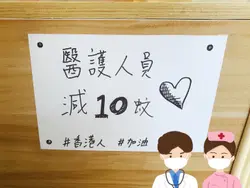 醫護人員
減10蚊
#香港人 #加油